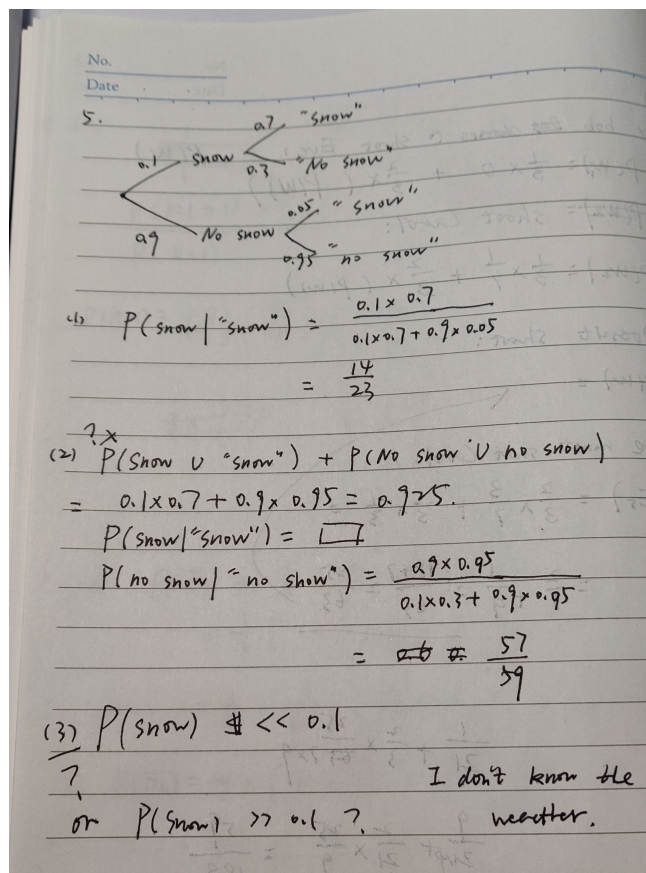 No.
Date
5.
0.7 "snow"
0.1 snow
0.3 "No snow"
0.05 "snow"
0.9 No snow
0.95 "no snow"
(1) P(snow|"snow") = 0.1×0.7 / 0.1×0.7+0.9×0.05
= 14/23
? ×
(2) P(Snow ∪ "snow") + P(No snow ∪ no snow)
= 0.1×0.7+0.9×0.95 = 0.925.
P(snow|"snow") = □
P(no snow|"no show") = 0.9×0.95 / 0.1×0.3+0.9×0.95
= 57/59
(3) P(snow) << 0.1
? I don't know the
or P(snow) >> 0.1 ? weather.